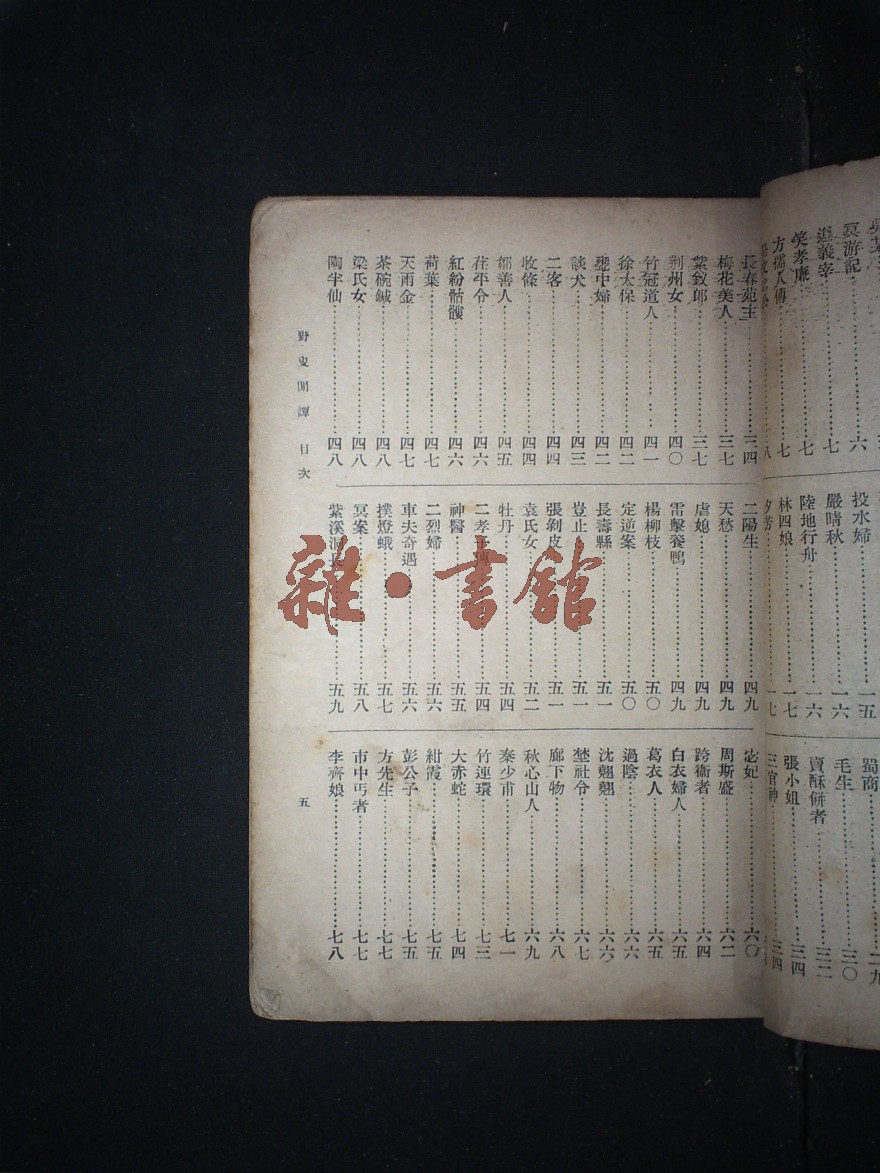 冥游記……六
遊義宰……七
笑孝廉……七
方儒人傳……七
投水婦……一五
嚴晴秋……一六
陸地行舟……一六
林四娘……一七
蜀商……二九
毛生……三〇
賣酥餅者……三二
張小姐……三四
三官神……三四
長春苑主……三四
梅花美人……三七
紫釵郎……三七
荆州女……四〇
竹冠道人……四一
徐太保……四二
甕中婦……四二
談犬……四三
二客……四四
收條……四四
鄒善人……四五
茌平令……四六
紅紛骷髏……四六
荷葉……四七
天雨金……四七
茶碗鍼……四八
梁氏女……四八
陶半仙……四八
二陽生……四九
天愁……四九
虐媳……四九
雷擊養鴨……四九
楊柳枝……五〇
定逆案……五〇
長壽縣……五一
豈止……五一
張剝皮……五一
袁氏女……五二
牡丹……五四
二孝子傳……五四
神醫……五五
二烈婦……五六
車夫奇遇……五六
撲燈蛾……五七
冥案……五八
紫溪洞長……五九
宓妃……六〇
周斯盛……六二
跨衞者……六四
白衣婦人……六五
葛衣人……六五
過陰……六六
沈翹翹……六六
埜社令……六七
廊下物……六八
秋心山人……六九
秦少甫……七一
竹連環……七三
大赤蛇……七四
紺霞……七五
彭公子……七五
方先生……七七
市中丐者……七七
李齊娘……七八
野史閒譚 目次
五
雜·書館